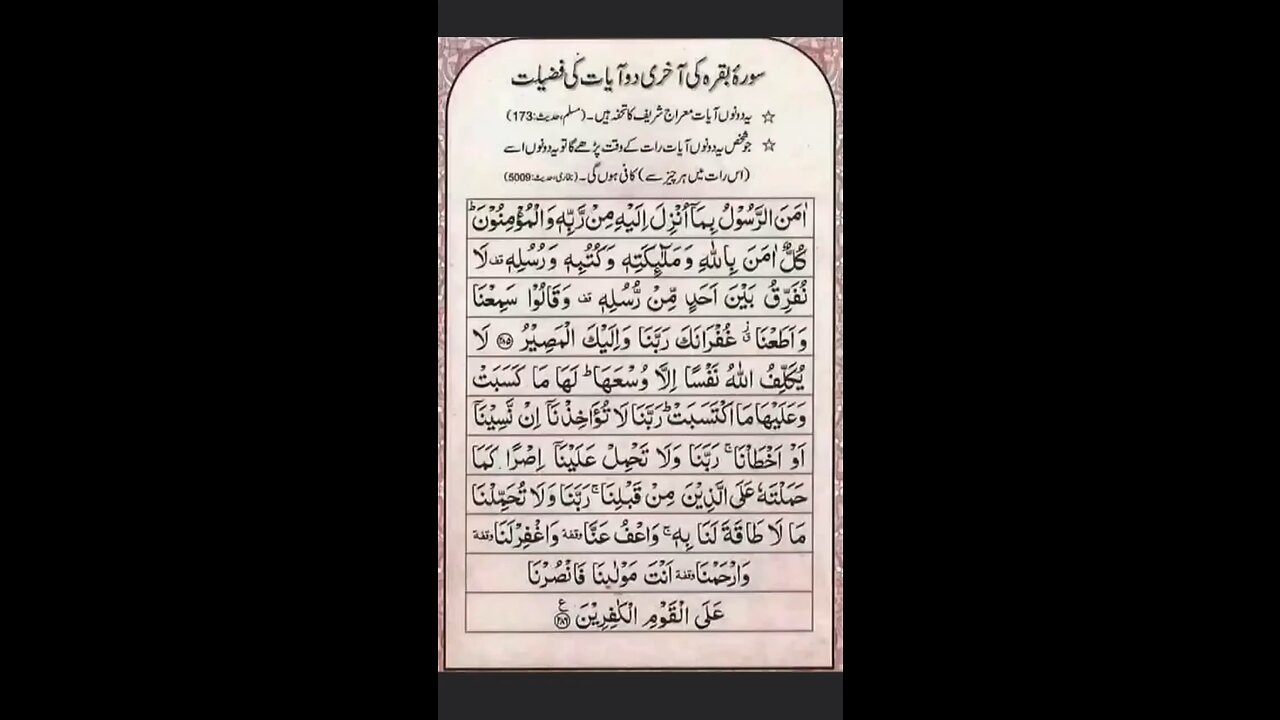 سورۂ بقرہ کی آخری دو آیات کی فضیلت
☆ یہ دونوں آیات معراج شریف کا تحفہ ہیں۔ (مسلم، حدیث: 173)
☆ جو شخص یہ دونوں آیات رات کے وقت پڑھے گا تو یہ دونوں اسے
(اس رات میں ہر چیز سے) کافی ہوں گی۔ (بخاری، حدیث: 5009)
اٰمَنَ الرَّسُوْلُ بِمَاۤ اُنْزِلَ اِلَیْهِ مِنْ رَّبِّهٖ وَالْمُؤْمِنُوْنَ ؕ
كُلٌّ اٰمَنَ بِاللّٰهِ وَمَلٰٓئِكَتِهٖ وَكُتُبِهٖ وَرُسُلِهٖ قف لَا
نُفَرِّقُ بَیْنَ اَحَدٍ مِّنْ رُّسُلِهٖ قف وَقَالُوْا سَمِعْنَا
وَاَطَعْنَا ق٘ غُفْرَانَكَ رَبَّنَا وَاِلَیْكَ الْمَصِیْرُ ﴿۲۸۵﴾ لَا
یُكَلِّفُ اللّٰهُ نَفْسًا اِلَّا وُسْعَهَا ؕ لَهَا مَا كَسَبَتْ
وَعَلَیْهَا مَا اكْتَسَبَتْ ؕ رَبَّنَا لَا تُؤَاخِذْنَاۤ اِنْ نَّسِیْنَاۤ
اَوْ اَخْطَاْنَا ۚ رَبَّنَا وَلَا تَحْمِلْ عَلَیْنَاۤ اِصْرًا كَمَا
حَمَلْتَهٗ عَلَى الَّذِیْنَ مِنْ قَبْلِنَا ۚ رَبَّنَا وَلَا تُحَمِّلْنَا
مَا لَا طَاقَةَ لَنَا بِهٖ ۚ وَاعْفُ عَنَّا وقفة وَاغْفِرْ لَنَا وقفة
وَارْحَمْنَا وقفة اَنْتَ مَوْلٰىنَا فَانْصُرْنَا
عَلَى الْقَوْمِ الْكٰفِرِیْنَ ﴿۲۸۶﴾ ع